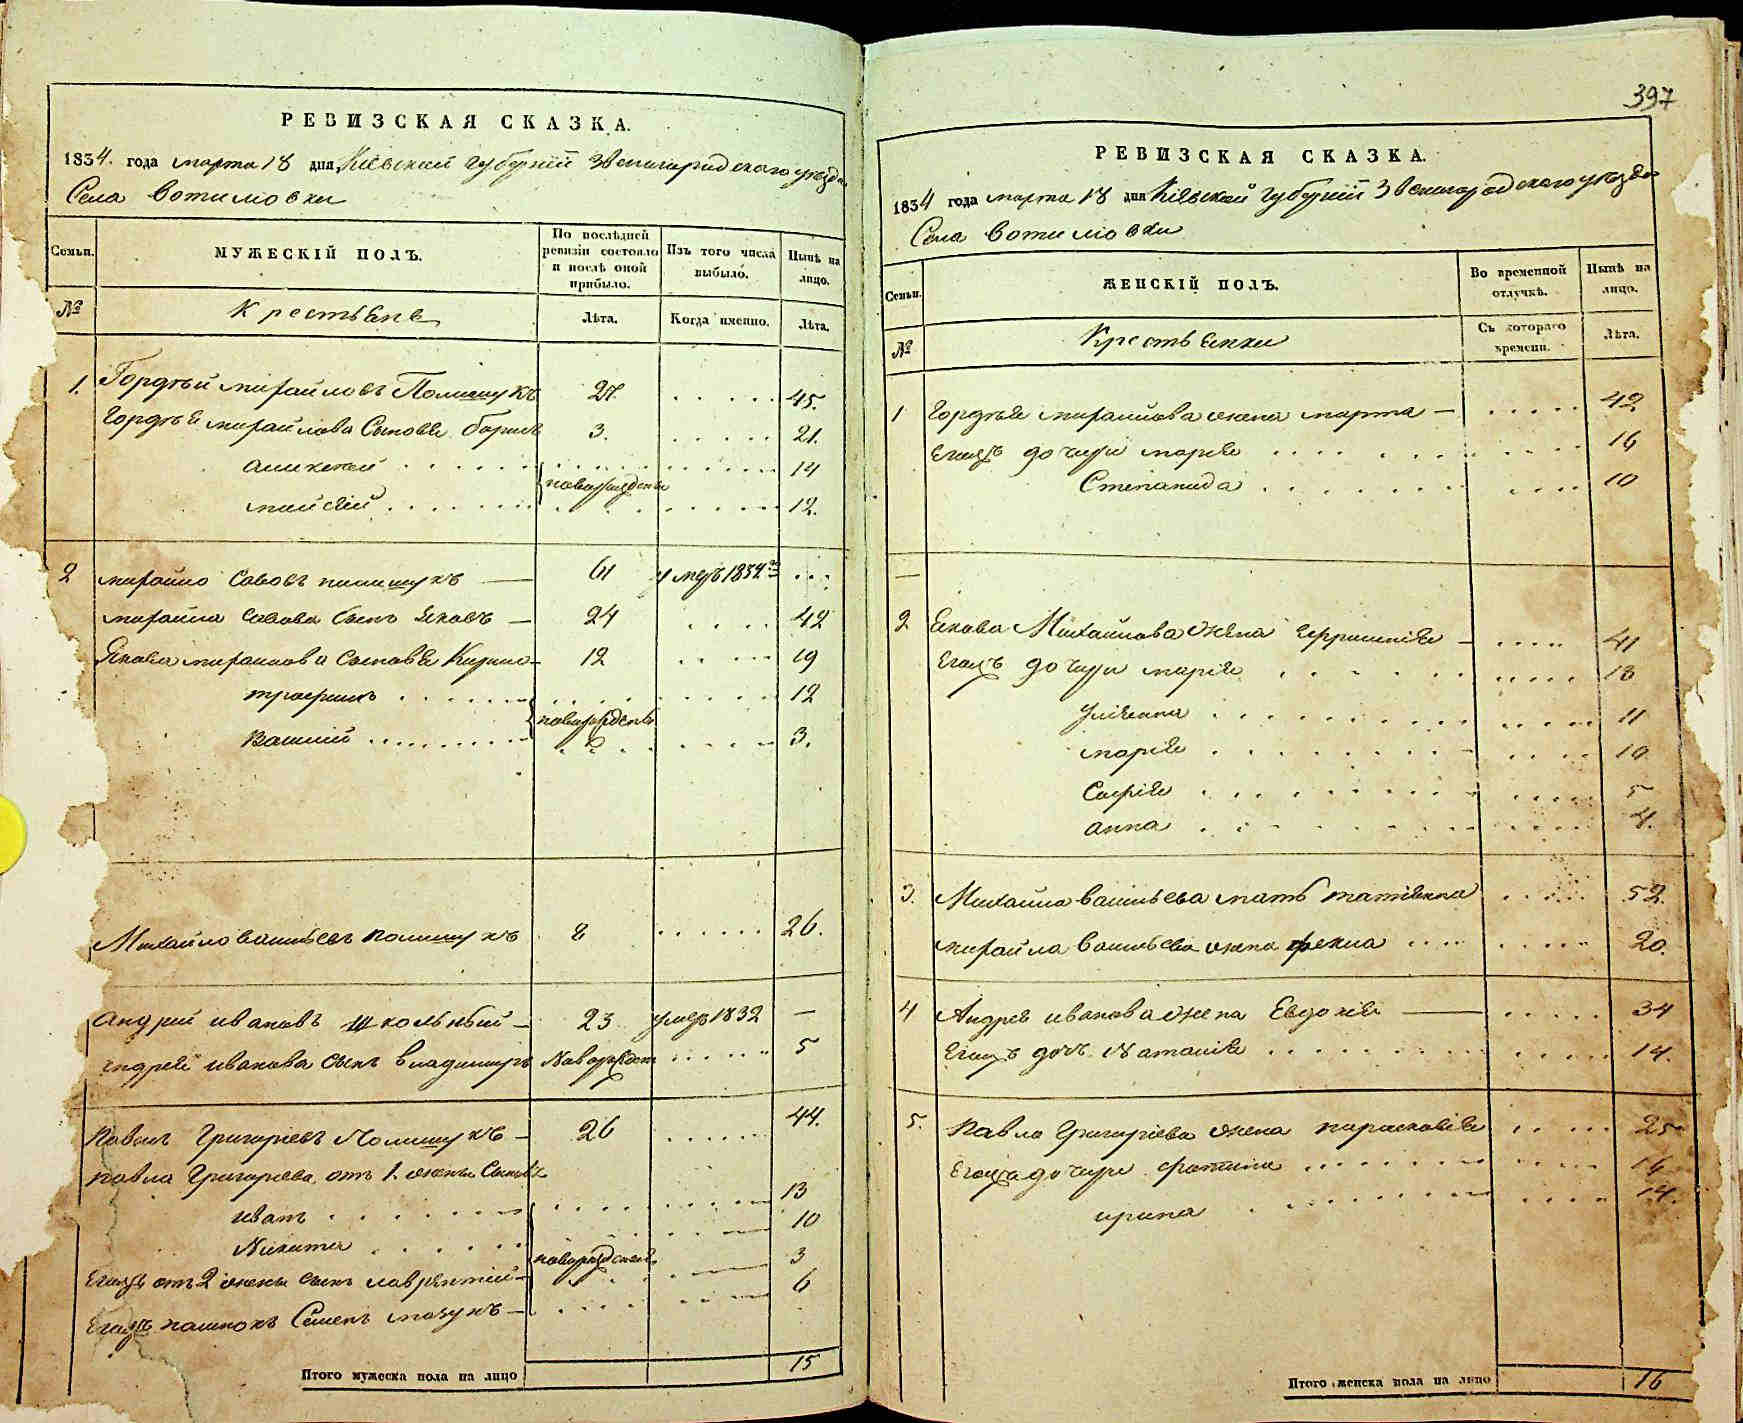 РЕВИЗСКАЯ СКАЗКА.
1834. года марта 18 дня Кіевской губерніи Звенигородского уезда
Села Вотилювки
Семьи.
МУЖЕСКІЙ ПОЛЪ.
По послѣдней ревизіи состояло и послѣ оной прибыло.
Изъ того числа выбыло.
Нынѣ на лицо.
№
Крестьяне
Лѣта.
Когда именно.
Лѣта.
1. Гордѣй михайловъ Полищукъ 27. 45.
Гордѣя михайлова Сыновья Борисъ 3. 21.
аликсей 14
новорожденны
мойсей 12.
2 михайло Савовъ полищукъ — 61 умеръ 1834 ...
михайла Савова Сынъ Яковъ — 24 42
Якова михайлова Сыновья Кирило 12 19
трофимъ 12
новорожденны
Василий 3.
Михайло васильевъ полищукъ 8 26.
Андрей ивановъ Школьный — 23 умеръ 1832 —
андрея иванова сынъ владимиръ новорожден 5
Павелъ Григоріевъ Полищукъ — 26 44.
павла Григоріева отъ 1. жены Сыновья
иванъ 13
Никита 10
новорожден
Егожъ отъ 2 жены сынъ лаврентий 3
Егожъ Семенъ 6
Итого мужеска пола на лицо 15
397
РЕВИЗСКАЯ СКАЗКА.
1834 года марта 18 дня Кіевской Губерніи Звенигородского уезда
Села Вотилювки
Семьи.
ЖЕНСКІЙ ПОЛЪ.
Во временной отлучкѣ.
Нынѣ на лицо.
№
Крестьянки
Съ котораго времени.
Лѣта.
1 Гордѣя михайлова жена марта — 42
Егожъ дочери марія 16
Степанида 10
2 Якова Михайлова жена — 41
Егожъ дочери марія 13
Уліянна 11
марія 10
Софія 5
анна 4.
3. Михайла васильева мать татіянна 52.
михайла васильева жена фекла 20.
4 Андрея иванова жена Евдокія — 34
Егожъ дочь Наталія 14.
5. Павла Григоріева жена параскавія 25
Егожъ дочери 16
ирина 14.
Итого женска пола на лицо 16